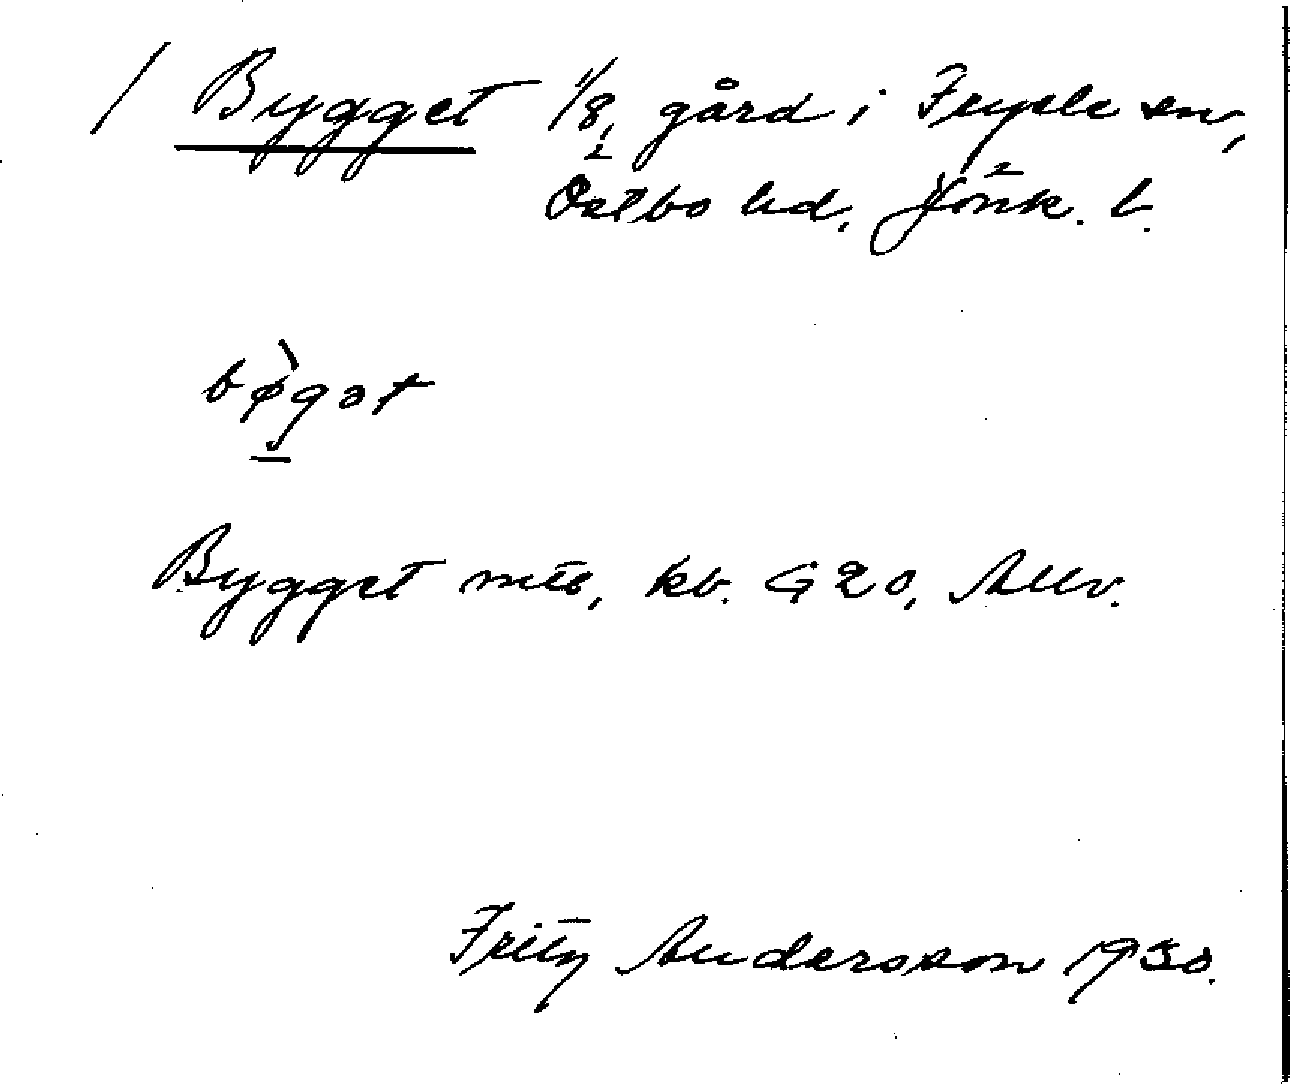 / Bygget 1/8, gård i Fryele sn,
Östbo hd, Jönk. l.
bø̀gət
Bygget mtb, kb. G 20, Allv.
Fritz Andersson 1930.